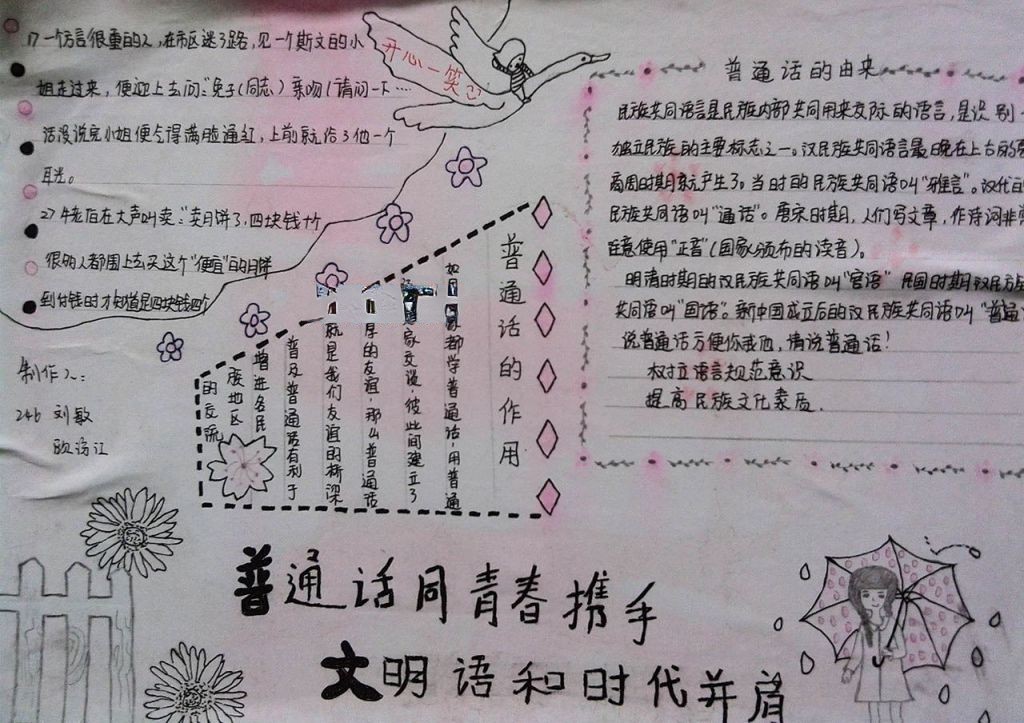 1、一个方言很重的人，在市区迷了路，见一个斯文的小
姐走过来，便迎上去问：“兔子（同志）亲吻（请问一下…
话没说完小姐便气得满脸通红，上前就给了他一个
耳光。
2、老伯在大声叫卖：“卖月饼了，四块钱
很多人都围上去买这个“便宜”的月饼
到付钱时才知道是四块钱四个
开心一笑
普通话的由来
民族共同语言是民族内部共同用来交际的语言，是识别一
独立民族的主要标志之一。汉民族共同语言最晚在上古的
商周时期就产生了。当时的民族共同语叫“雅言”。汉代
民族共同语叫“通话”。唐宋时期，人们写文章，作诗词非常
注意使用“正音”（国家颁布的读音）。
明清时期的汉民族共同语叫“官话” 民国时期汉民族
共同语叫“国语”。新中国成立后的汉民族共同语叫“普通
说普通话方便你我他，请说普通话！
树立语言规范意识
提高民族文化素质.
普通话的作用
如 都学普通话，用普通
家交谈，彼此间建立了
厚的友谊，那么普通话
就是我们友谊的桥梁
普及普通话有利于
增进各民
族地区
的交流
制作人：
246 刘敏
欧
普通话同青春携手
文明语和时代并肩